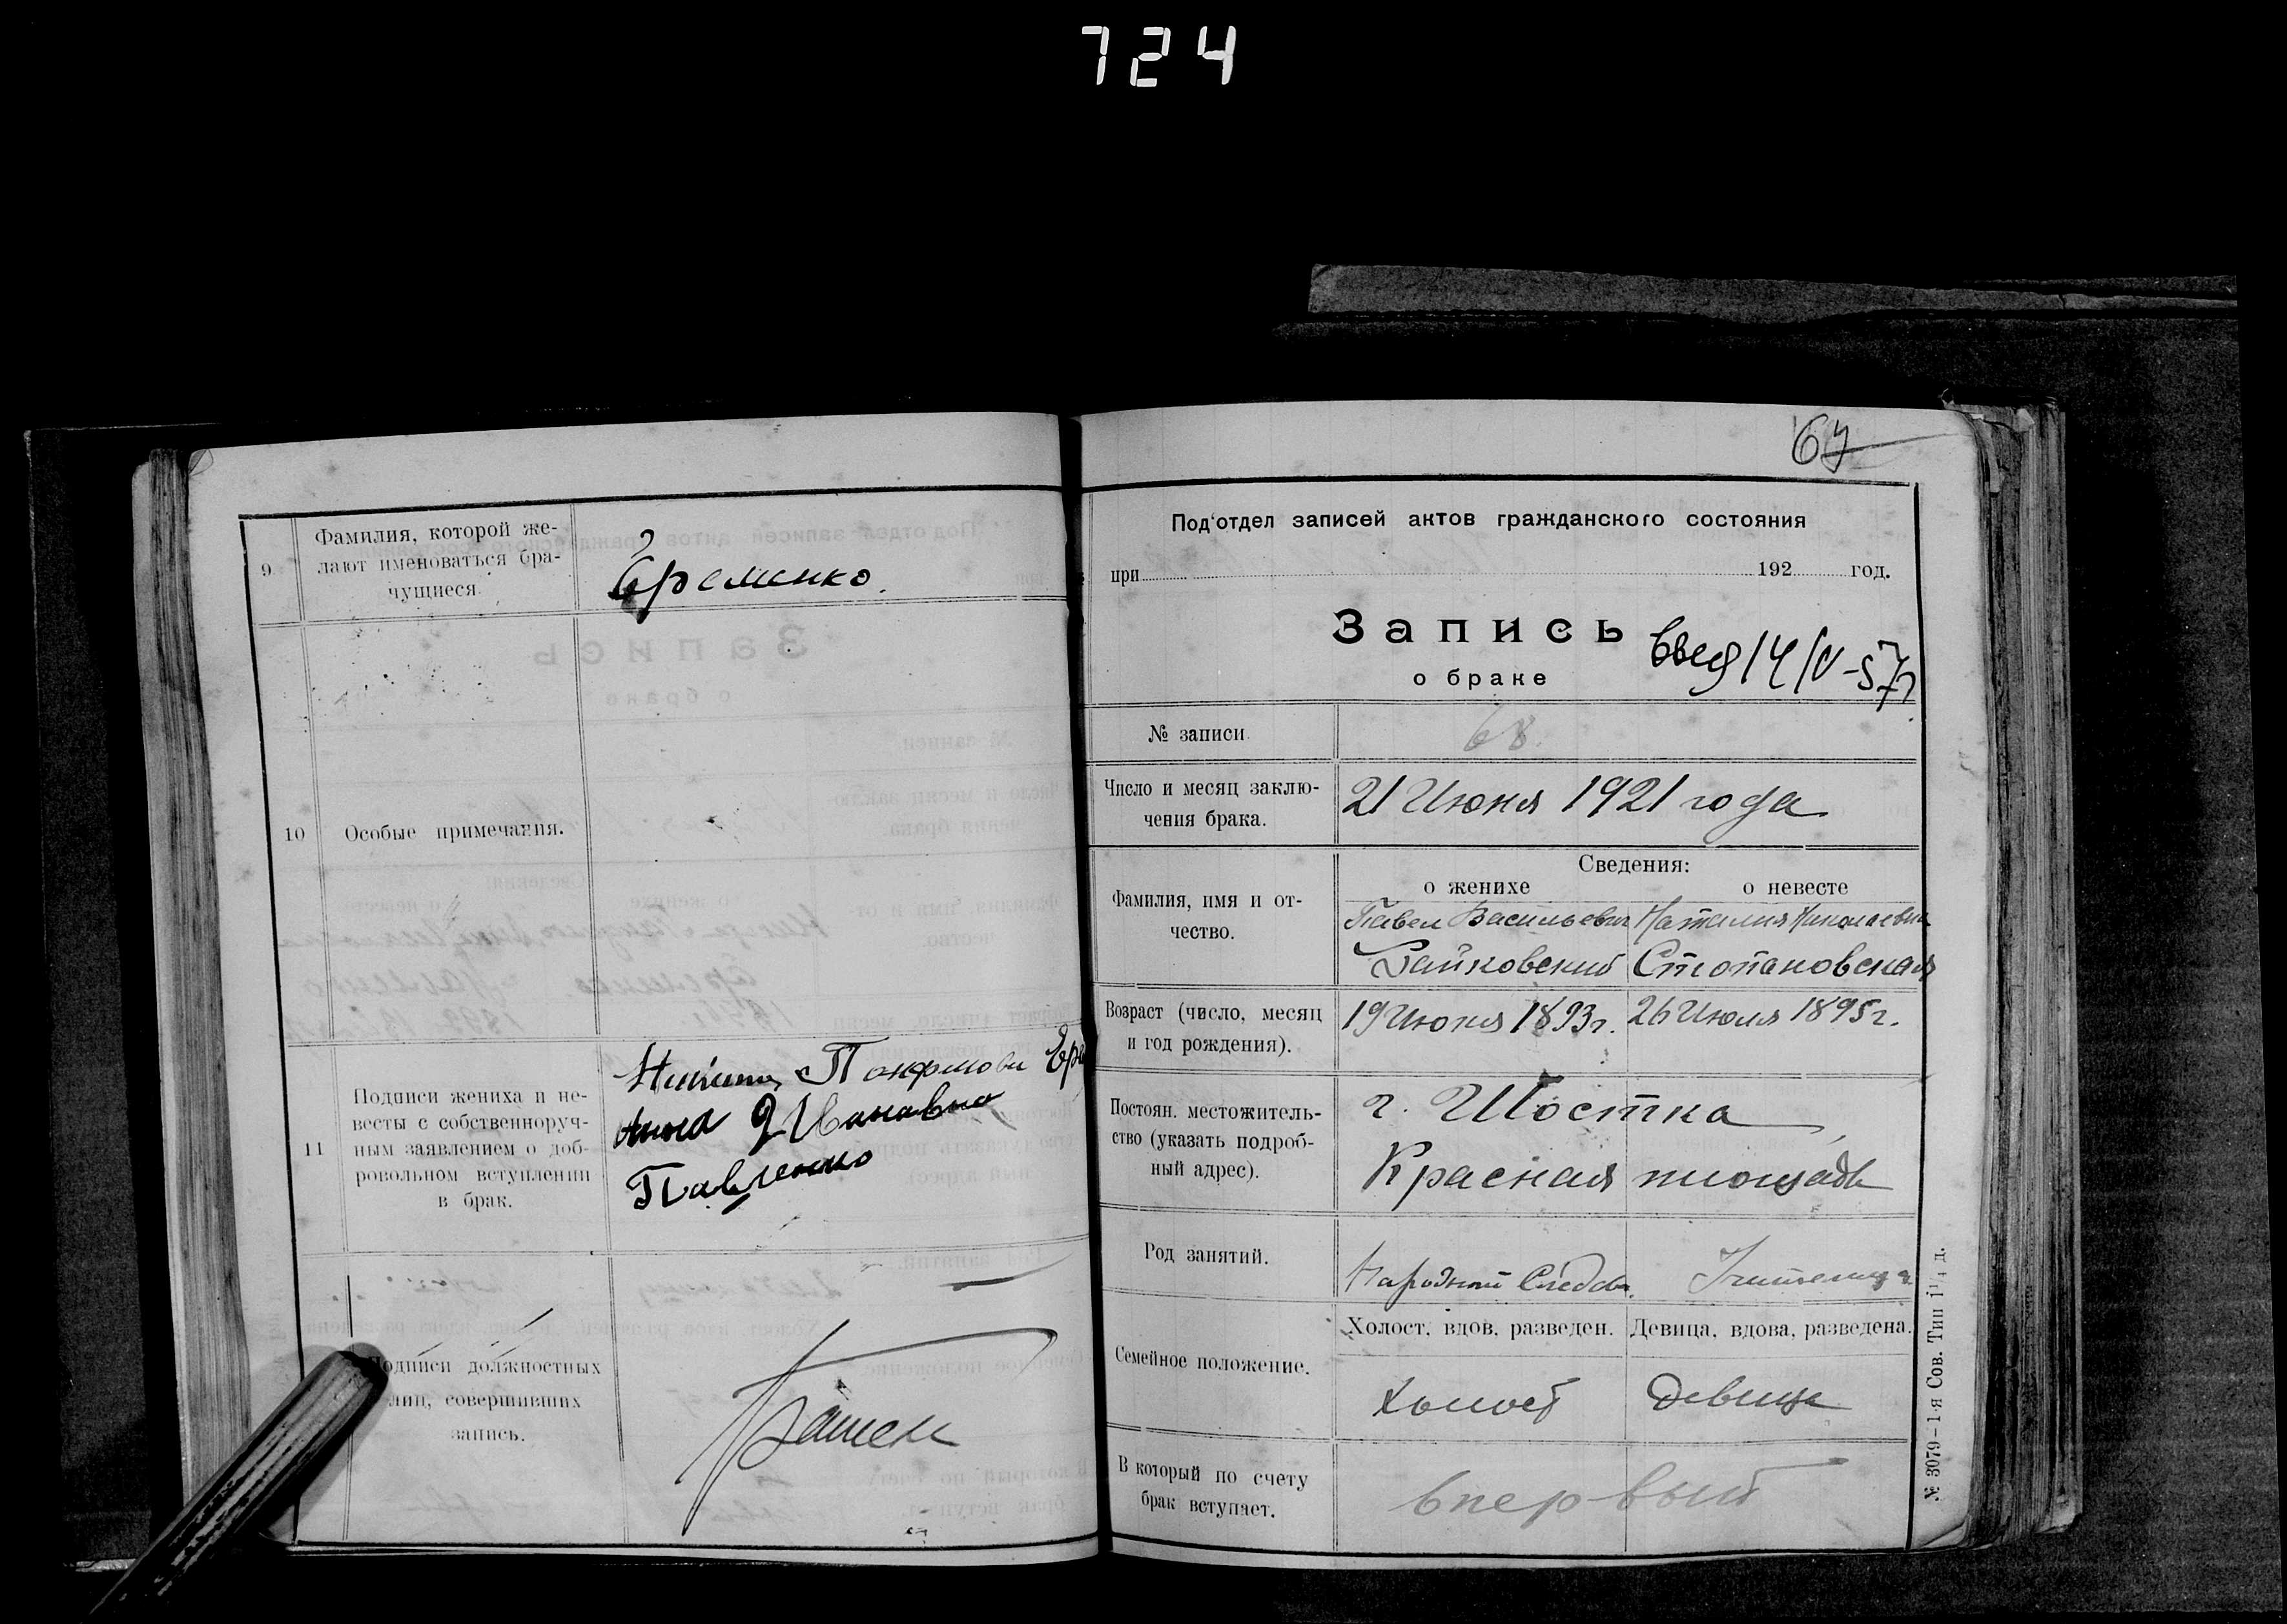 724
9. Фамилия, которой же-
лают именоваться бра-
чущиеся.
Еременко.
10 Особые примечания.
11 Подписи жениха и не-
весты с собственноруч-
ным заявлением о доб-
ровольном вступлении
в брак.
Анна Ивановна
Павленко
Подписи должностных
лиц, совершивших
запись.
67
Под'отдел записей актов гражданского состояния
при 192 год.
Запись
о браке
14/IV-57г
№ записи.
68.
Число и месяц заклю-
чения брака.
21 Июня 1921 года
Сведения:
о женихе о невесте
Фамилия, имя и от-
чество.
Павел Васильевич Наталия Николаевна
Возраст (число, месяц
и год рождения).
19 Июня 1893г. 26 Июля 1895г.
Постоян. местожитель-
ство (указать подроб-
ный адрес).
г. Шостка,
Красная площадь
Род занятий.
Народный Следов. Учительница
Холост, вдов, разведен. Девица, вдова, разведена.
Семейное положение.
Холост Девица
В который по счету
брак вступает.
впервый
№ 3079-1-я Сов. Тип 1¹/₄ д.